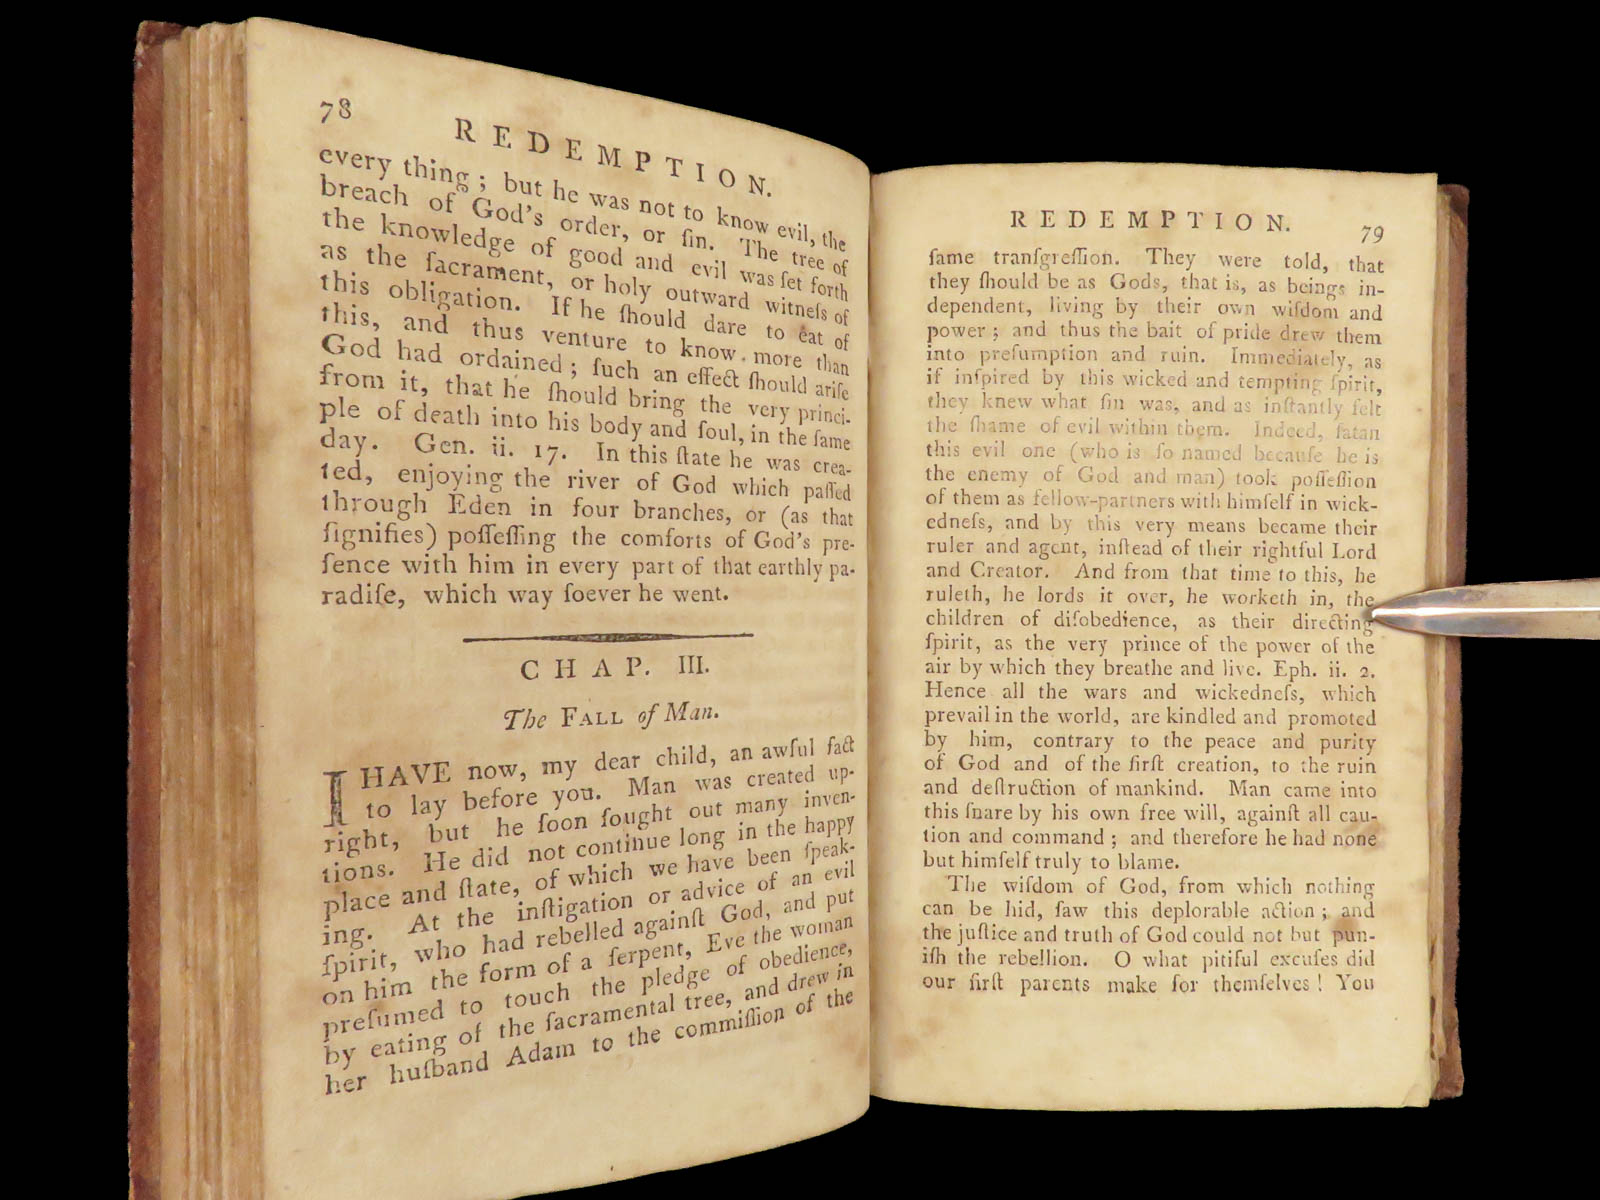 78
REDEMPTION.
every thing ; but he was not to know evil, the
breach of God's order, or ſin. The tree of
the knowledge of good and evil was ſet forth
as the ſacrament, or holy outward witneſs of
this obligation. If he ſhould dare to eat of
this, and thus venture to know more than
God had ordained ; ſuch an effect ſhould ariſe
from it, that he ſhould bring the very princi-
ple of death into his body and ſoul, in the ſame
day. Gen. ii. 17. In this ſtate he was crea-
ted, enjoying the river of God which paſſed
through Eden in four branches, or (as that
ſignifies) poſſeſſing the comforts of God's pre-
ſence with him in every part of that earthly pa-
radiſe, which way ſoever he went.
CHAP. III.
The FALL of Man.
I HAVE now, my dear child, an awful fact
to lay before you. Man was created up-
right, but he ſoon ſought out many inven-
tions. He did not continue long in the happy
place and ſtate, of which we have been ſpeak-
ing. At the inſtigation or advice of an evil
ſpirit, who had rebelled againſt God, and put
on him the form of a ſerpent, Eve the woman
preſumed to touch the pledge of obedience,
by eating of the ſacramental tree, and drew in
her huſband Adam to the commiſſion of the
REDEMPTION. 79
ſame tranſgreſſion. They were told, that
they ſhould be as Gods, that is, as beings in-
dependent, living by their own wiſdom and
power ; and thus the bait of pride drew them
into preſumption and ruin. Immediately, as
if inſpired by this wicked and tempting ſpirit,
they knew what ſin was, and as inſtantly felt
the ſhame of evil within them. Indeed, ſatan
this evil one (who is ſo named becauſe he is
the enemy of God and man) took poſſeſſion
of them as fellow-partners with himſelf in wick-
edneſs, and by this very means became their
ruler and agent, inſtead of their rightful Lord
and Creator. And from that time to this, he
ruleth, he lords it over, he worketh in, the
children of diſobedience, as their directing
ſpirit, as the very prince of the power of the
air by which they breathe and live. Eph. ii. 2.
Hence all the wars and wickedneſs, which
prevail in the world, are kindled and promoted
by him, contrary to the peace and purity
of God and of the firſt creation, to the ruin
and deſtruction of mankind. Man came into
this ſnare by his own free will, againſt all cau-
tion and command ; and therefore he had none
but himſelf truly to blame.
The wiſdom of God, from which nothing
can be hid, ſaw this deplorable action ; and
the juſtice and truth of God could not but pun-
iſh the rebellion. O what pitiful excuſes did
our firſt parents make for themſelves ! You